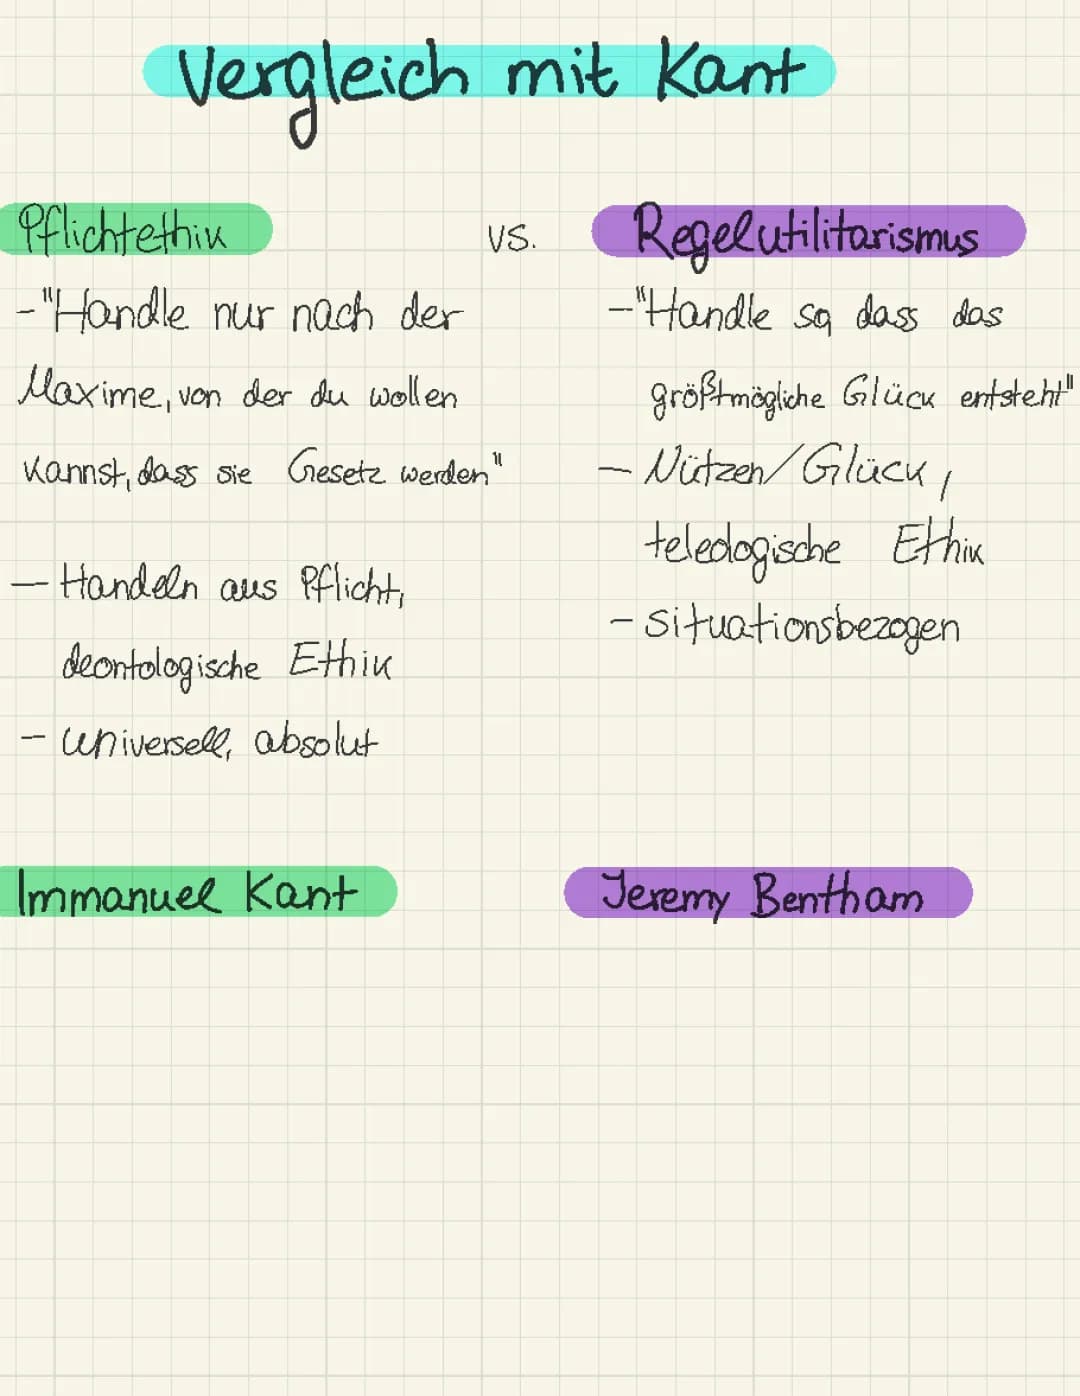 Vergleich mit Kant
Pflichtethik vs. Regelutilitarismus
-"Handle nur nach der
Maxime, von der du wollen
kannst, dass sie Gesetz werden"
- Handeln aus Pflicht,
deontologische Ethik
- universell, absolut
-"Handle so, dass das
größtmögliche Glück entsteht"
- Nützen/Glück,
teleologische Ethik
- situationsbezogen
Immanuel Kant
Jeremy Bentham